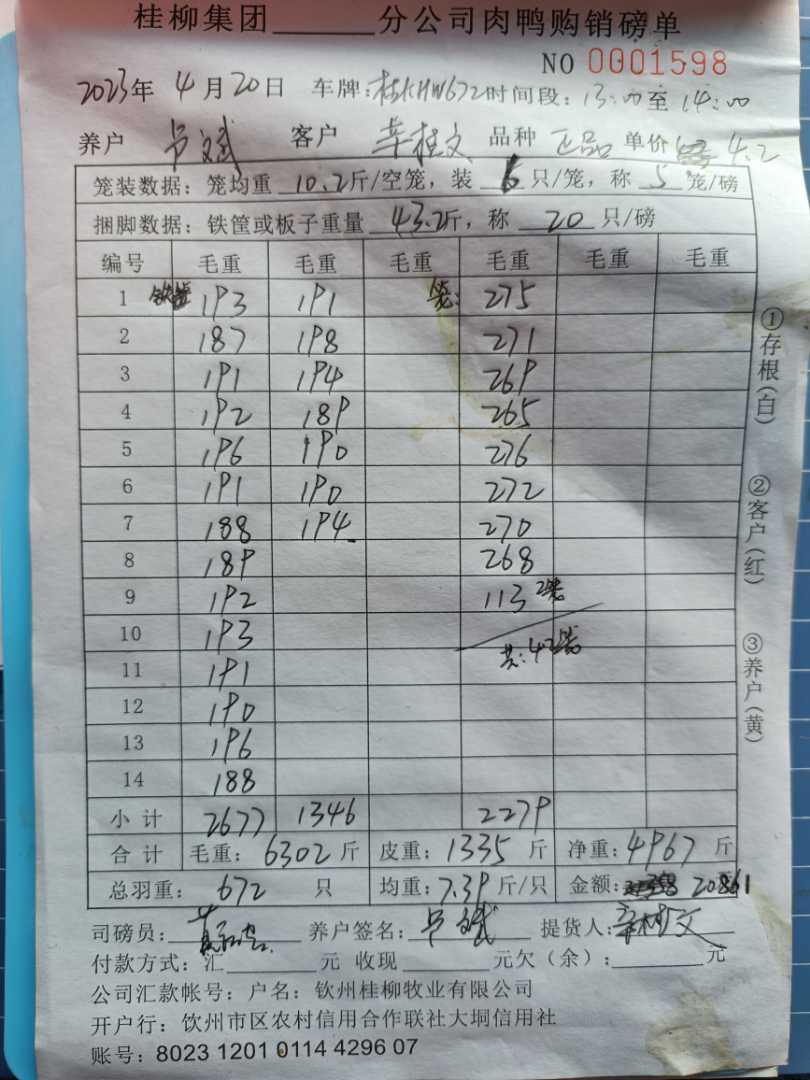 桂柳集团______分公司肉鸭购销磅单
NO 0001598
2023年 4月20日 车牌:桂KHW672 时间段:13:00至14:00
养户 吕斌 客户 辛桂文 品种 正品 单价 4.2
笼装数据:笼均重 10.2斤/空笼,装 6 只/笼,称 5 笼/磅
捆脚数据:铁筐或板子重量 43.2斤,称 20 只/磅
编号 毛重 毛重 毛重 毛重 毛重 毛重
1 193 191 笼: 275
2 187 198 271
3 191 194 269
4 192 189 265
5 196 190 276
6 191 190 272
7 188 194 270
8 189 268
9 192 113 2笼
10 193 共:42笼
11 191
12 190
13 196
14 188
小计 2677 1346 2279
合计 毛重:6302斤 皮重:1335斤 净重:4967斤
总羽重:672只 均重:7.39斤/只 金额:20861
司磅员: 养户签名:吕斌 提货人:辛桂文
付款方式:汇______元 收现______元欠(余):______元
公司汇款帐号:户名:钦州桂柳牧业有限公司
开户行:饮州市区农村信用合作联社大垌信用社
账号:8023 1201 0114 4296 07
①存根(白)
②客户(红)
③养户(黄)